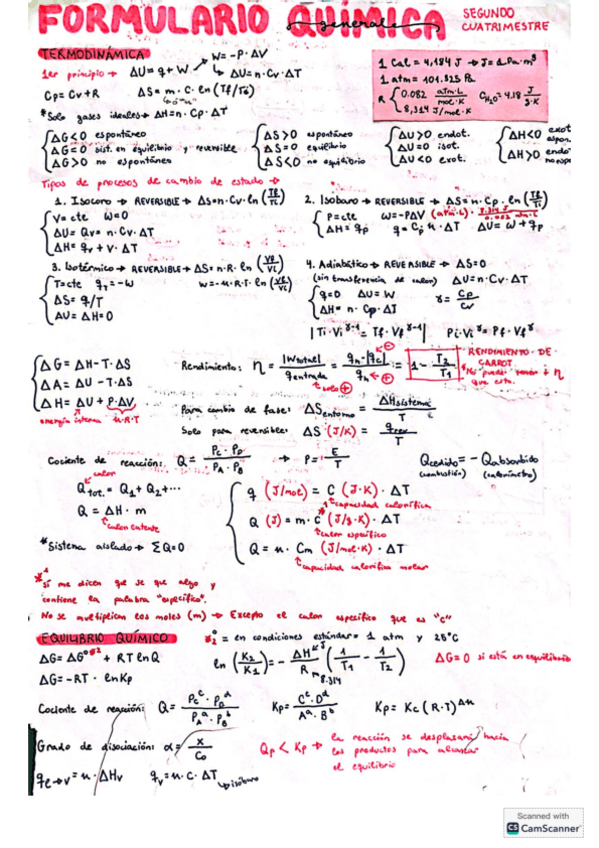 FORMULARIO QUÍMICA
generale
SEGUNDO CUATRIMESTRE
TERMODINÁMICA
1er principio → ΔU = q + W
W = -P·ΔV
ΔU = n·Cv·ΔT
Cp = Cv + R ΔS = m·C·ln (Tf/To)
*Solo gases ideales → ΔH = n·Cp·ΔT
1 Cal = 4,184 J → J = 1 Pa·m³
1 atm = 101.325 Pa
R { 0.082 atm·L / mol·K
8,314 J/mol·K
C H₂O = 4.18 J/g·K
ΔG<0 espontáneo
ΔG=0 sist. en equilibrio y reversible
ΔG>0 no espontáneo
ΔS>0 espontáneo
ΔS=0 equilibrio
ΔS<0 no equilibrio
ΔU>0 endot.
ΔU=0 isot.
ΔU<0 exot.
ΔH<0 exot
ΔH>0 endo
Tipos de procesos de cambio de estado →
1. Isocoro → REVERSIBLE → ΔS = n·Cv·ln (Tf/Ti)
V = cte W = 0
ΔU = Qv = n·Cv·ΔT
ΔH = qv + V·ΔT
2. Isobaro → REVERSIBLE → ΔS = n·Cp·ln (Tf/Ti)
P = cte W = -PΔV (atm·L) · 8.314 J / 0.082 atm·L
ΔH = qp q = Cp n·ΔT ΔU = W + qp
3. Isotérmico → REVERSIBLE → ΔS = n·R·ln (Vf/Vi)
T = cte q = -W W = -n·R·T·ln (Vf/Vi)
ΔS = q/T
ΔU = ΔH = 0
4. Adiabático → REVERSIBLE → ΔS = 0
(sin transferencia de calor) ΔU = n·Cv·ΔT
q = 0 ΔU = W γ = Cp/Cv
ΔH = n·Cp·ΔT
|Ti·Vi^γ-1 = Tf·Vf^γ-1| Pi·Vi^γ = Pf·Vf^γ
ΔG = ΔH - T·ΔS
ΔA = ΔU - T·ΔS
ΔH = ΔU + P·ΔV
energía interna n·R·T
Rendimiento: η = |Wtotal| / qentrada = qh - |qc| / qh = 1 - T2/T1
solo ⊕
RENDIMIENTO DE CARNOT
Para cambio de fase: ΔSentorno = ΔHsistema / T
Solo para reversible: ΔS (J/K) = qrev / T
Cociente de reacción: Q = Pc·PD / PA·PB → P = E/T
Qcedido = -Qabsorbido
(combustión) (calorímetro)
calor
Qtot. = Q1 + Q2 + ...
Q = ΔH·m
calor latente
*Sistema aislado → ΣQ=0
q (J/mol) = C (J·K)·ΔT
capacidad calorífica
Q (J) = m·C (J/g·K)·ΔT
calor específico
Q = n·Cm (J/mol·K)·ΔT
capacidad calorífica molar
si me dicen que se que algo y
contiene la palabra "específico".
No se multiplican los moles (m) → Excepto el calor específico que es "c"
EQUILIBRIO QUÍMICO
*2 ° = en condiciones estándar = 1 atm y 25°C
ΔG = ΔG° *2 + RT lnQ
ΔG = -RT·lnKp
ln (K2/K1) = - ΔH / R (1/T1 - 1/T2)
8.314
ΔG=0 si está en equilibrio
Cociente de reacción: Q = Pc^c·PD^d / PA^a·PB^b Kp = C^c·D^d / A^a·B^b Kp = Kc (R·T)^Δn
Grado de disociación: α = x/Co
Qp < Kp → la reacción se desplazará hacia
los productos para alcanzar
el equilibrio
qe→v = n·ΔHv qv = n·C·ΔT
isobaro
Scanned with
CS CamScanner